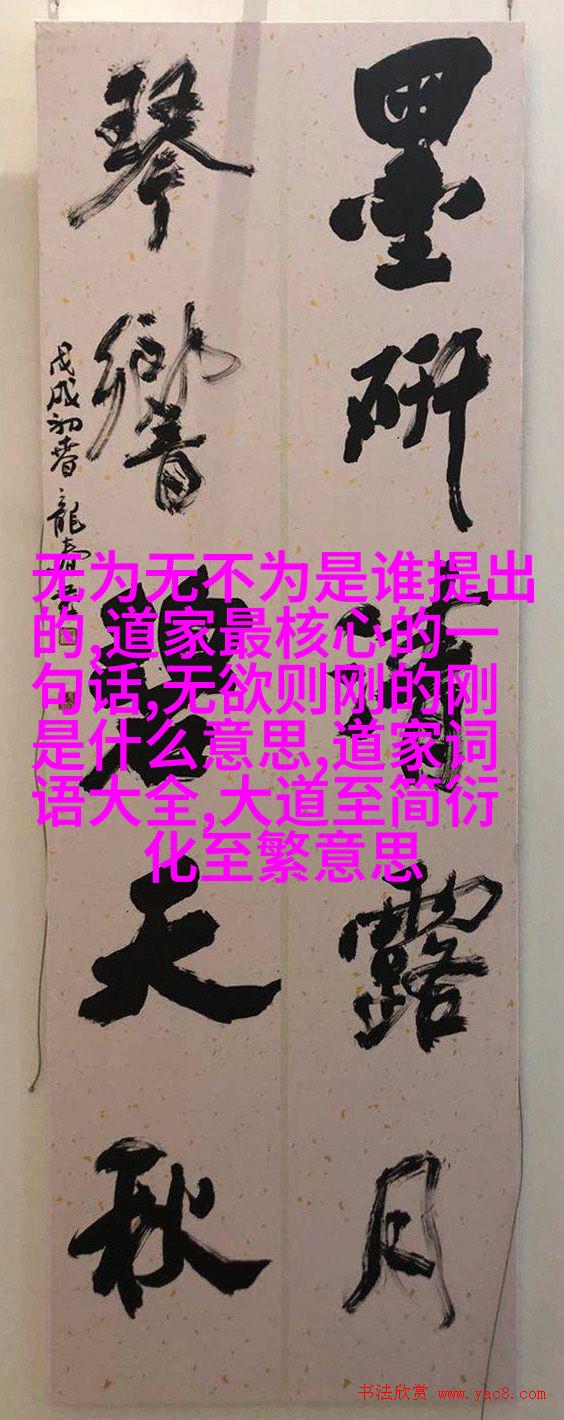 墨研清露月
琴響碧天秋
戊戌初春
龍
无为无不为是谁提出
的,道家最核心的一
句话,无欲则刚的刚
是什么意思,道家词
语大全,大道至简衍
化至繁意思
书法欣赏 www.yac8.com